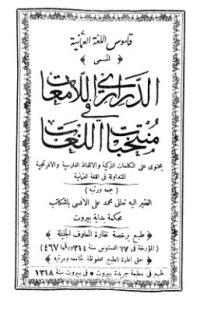 قاموس اللغة العثمانية
المسمى
الدراري اللامعات
في
منتخبات اللغات
يحتوي على الكلمات التركية والالفاظ الفارسية والافرنجية
المتداولة في اللغة العثمانية
جمعه ورتبه
الفقير اليه تعالى محمد علي الانسي باشكاتب
محكمة بداية بيروت
طبع برخصة نظارة المعارف الجليلة
المؤرخة في ٢٧ اغستوس سنة ٣١٤ ورقمها ٤٦٧
حق اعادة الطبع محفوظة لجامعه ومرتبه
طبع في مطبعة جريدة بيروت في بيروت سنة ١٣١٨